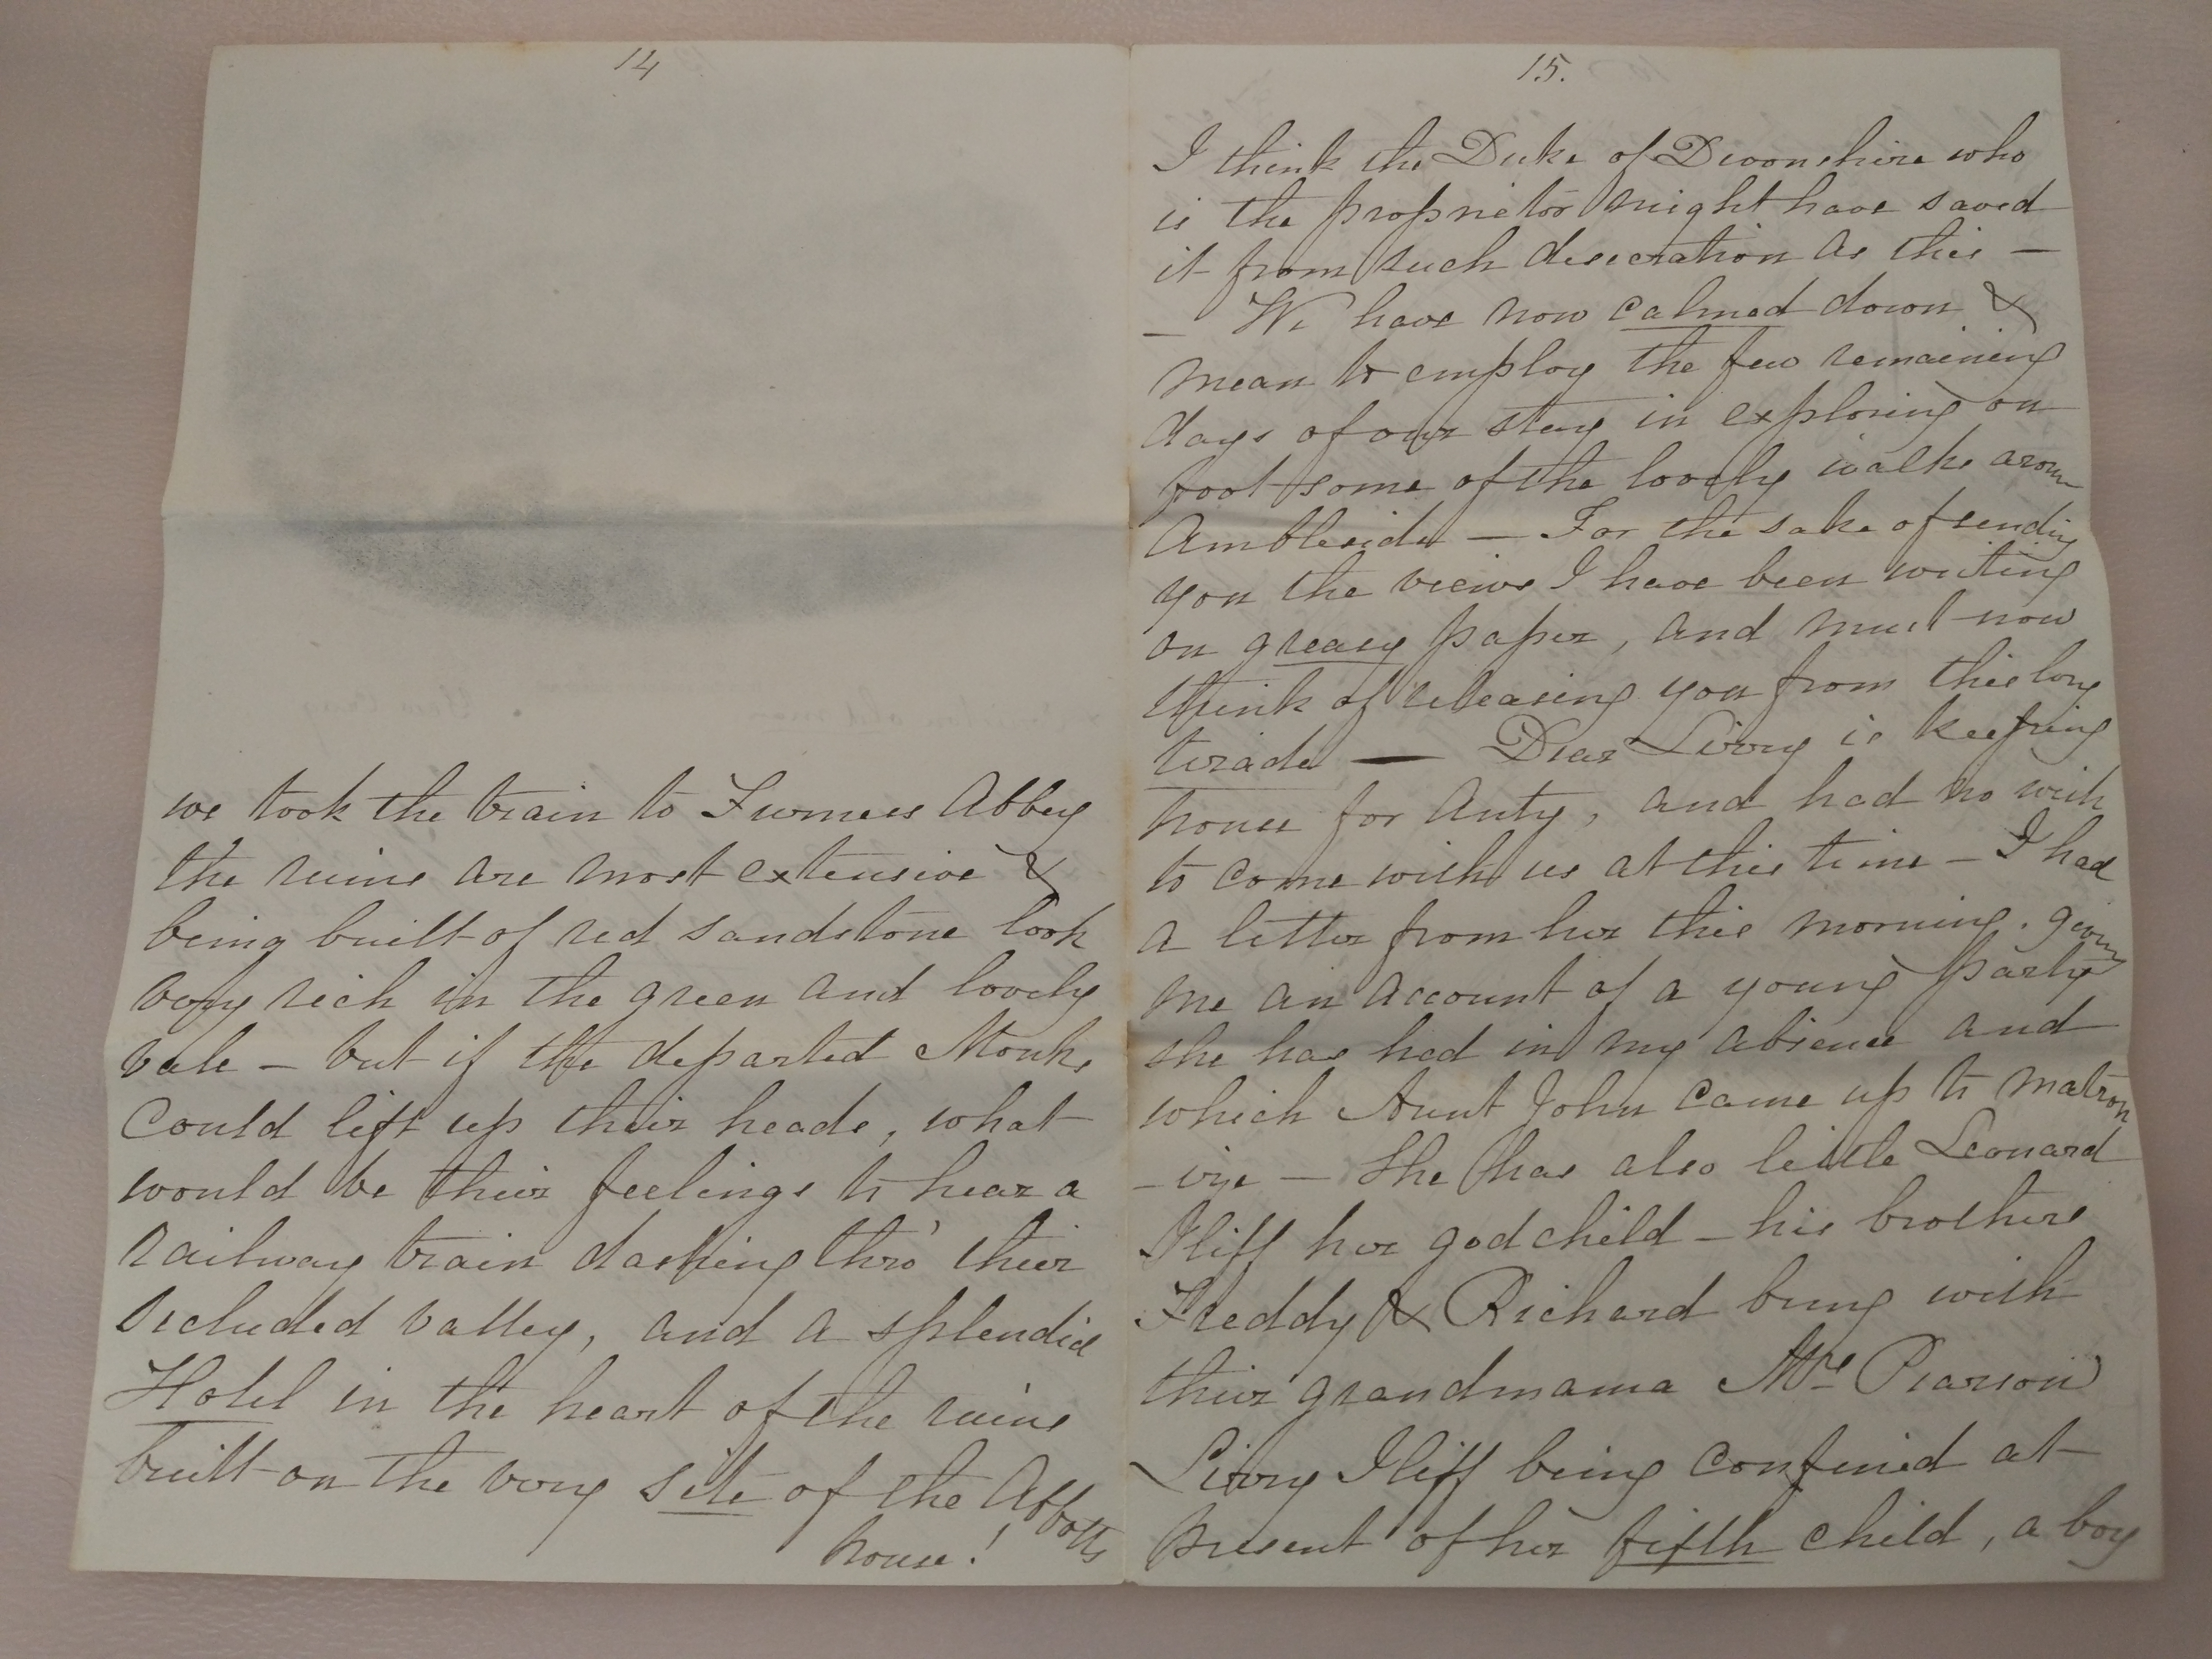 14
we took the train to Furness Abbey
the ruins are most extensive &
being built of red sandstone look
very rich in the green and lovely
vale — but if the departed Monks
Could lift up their heads, what
would be their feelings to hear a
railway train dashing thro' their
secluded valley, and a splendid
Hotel in the heart of the ruins
built on the very site of the Abbotts
house!
15.
I think the Duke of Devonshire who
is the proprietor might have saved
it from such desecration as this —
— We have now calmed down &
mean to employ the few remaining
days of our stay in exploring on
foot some of the lovely walks aroun
Ambleside — For the sake of sending
you the views I have been writing
on greasy paper, and must now
think of releasing you from this long
tirade — Dear Livvy is keeping
house for Anty, and had no wish
to come with us at this time — I had
a letter from her this morning. giving
me an account of a young party
she has had in my absence and
which Aunt John came up to matron
-ize — She has also little Leonard
Iliff her godchild — his brothers
Freddy & Richard being with
their grandmama Mrs Pearson
Livvy Iliff being confined at
present of her fifth child, a boy